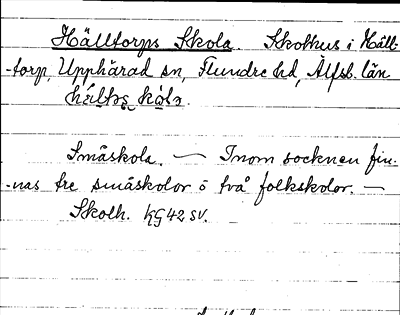 Hälltorps Skola. Skolhus i Häll-
-torp, Upphärad sn, Flundre hd, Älfsb. län
Småskola. — Inom socknen fin-
-nas tre småskolor o två folkskolor. —
Skolh. KG 42 SV.